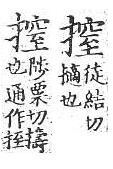 㨖徒結切
摘也
㨖陟栗切擣
也通作挃